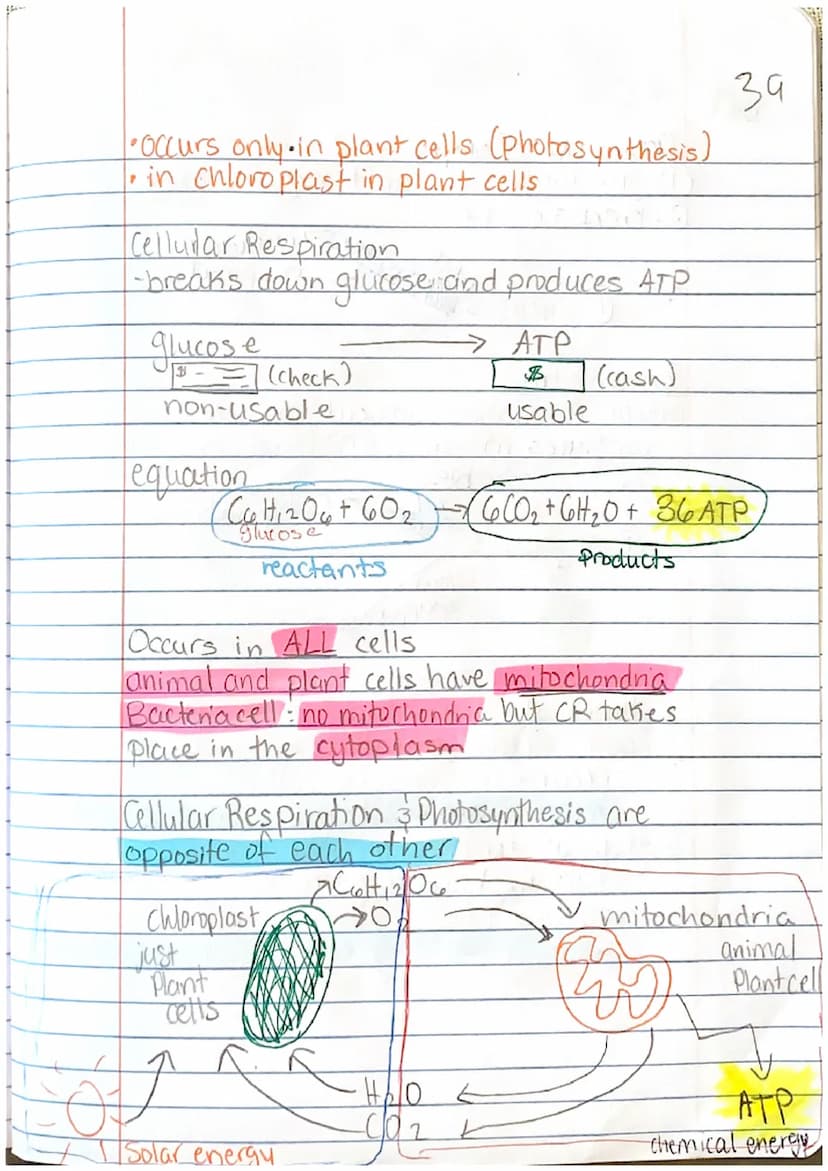 39
•occurs only•in plant cells (photosynthesis)
• in chloroplast in plant cells
Cellular Respiration
-breaks down glucose and produces ATP
glucose → ATP
$ (check) $ (cash)
non-usable usable
equation
C6H12O6 + 6O2 → 6CO2 + 6H2O + 36 ATP
glucose
reactants products
Occurs in ALL cells
animal and plant cells have mitochondria
Bacteria cell : no mitochondria but CR takes
place in the cytoplasm
Cellular Respiration & Photosynthesis are
opposite of each other
C6H12O6
chloroplast O2 mitochondria
just animal
plant Plant cell
cells
H2O
ATP
CO2
chemical energy
Solar energy